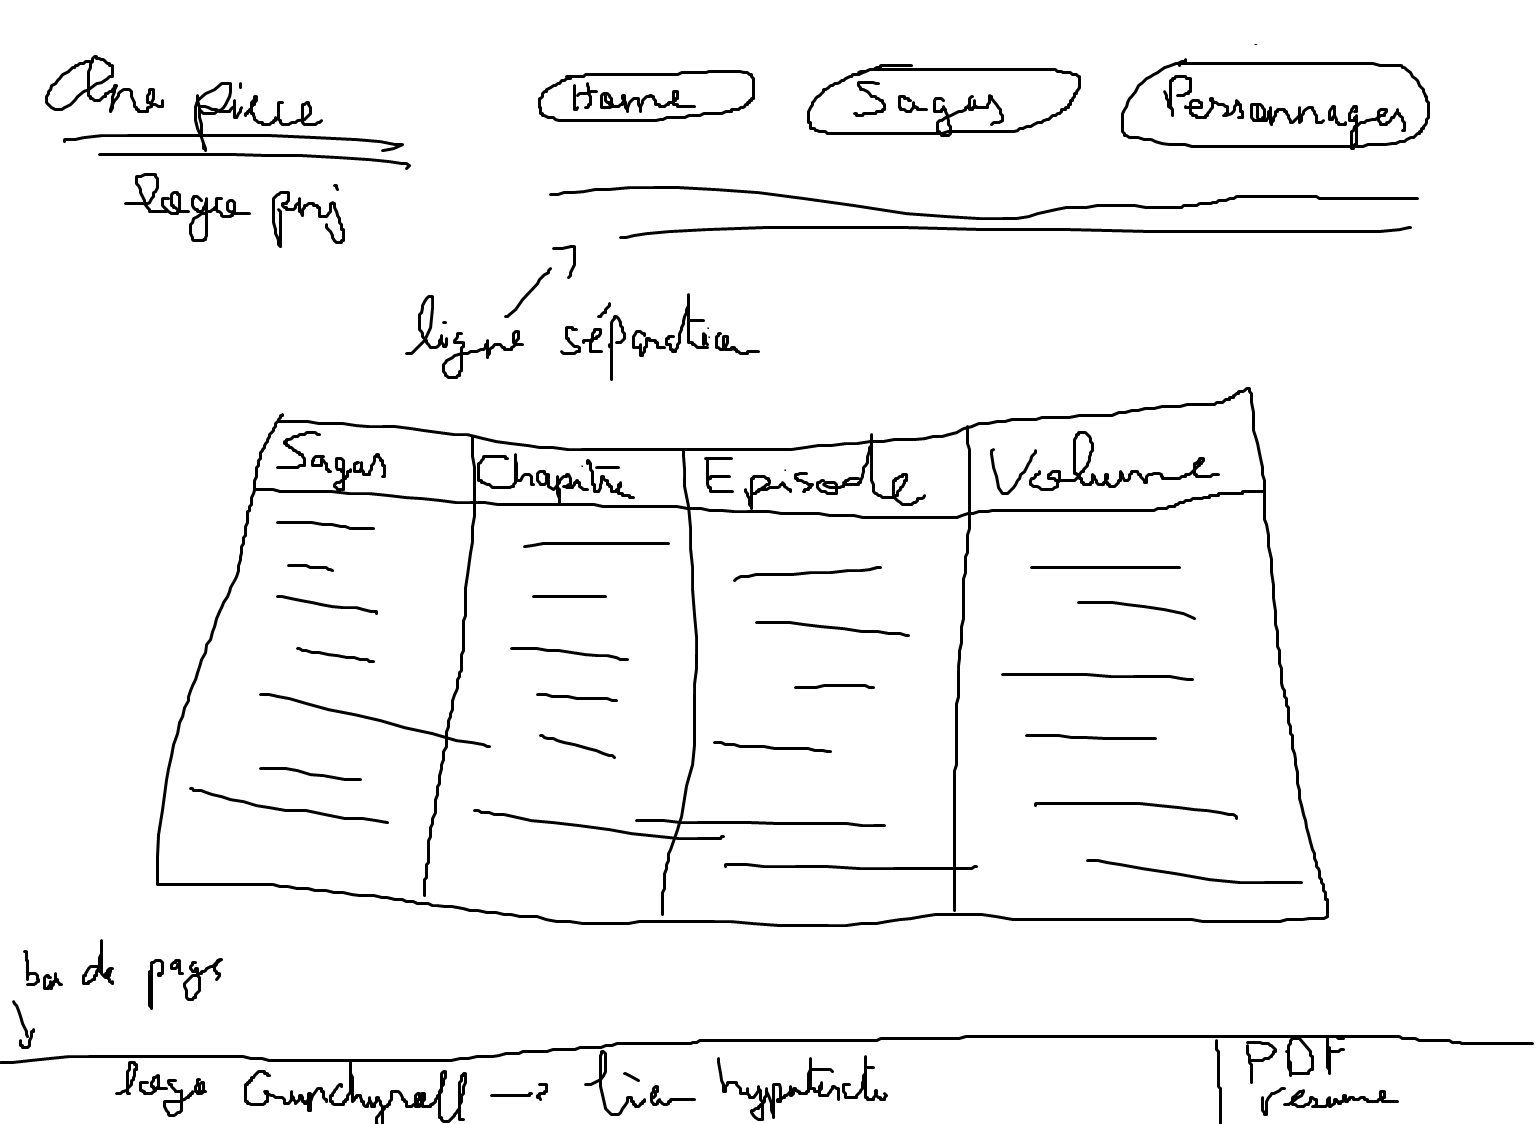 One piece
Home
Sagas
Personnages
logo prj
ligne séparation
Sagas
Chapitre
Episode
Volume
ba de page
logo Crunchyroll → lien hypertexte
PDF
resume